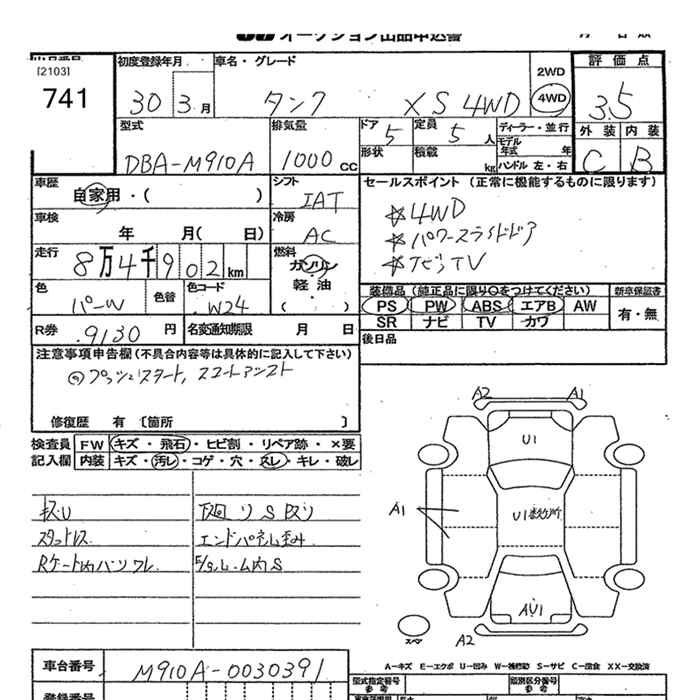 オークション出品申込書
[2103]
741
初度登録年月
30 3 月
車名・グレード
タンク XS 4WD
2WD
4WD
評価点
3.5
外装 内装
C B
型式
DBA-M910A
排気量
1000 cc
ドア 5
定員 5 人
ディーラー・並行
形状
積載 kg
モデル年式 年
ハンドル 左・右
車歴
自家用・( )
シフト
IAT
セールスポイント (正常に機能するものに限ります)
☆4WD
☆パワースライドドア
☆ナビTV
車検 年 月( 日)
冷房
AC
走行
8万4千902km
燃料
ガソリン
軽油
( )
色
パーW
色替
色コード
W24
装備品 (純正品に限り○をつけてください)
新車保証書
PS PW ABS エアB AW
SR ナビ TV カワ
有・無
R券 9130 円
名変通知期限 月 日
後日品
注意事項申告欄(不具合内容等は具体的に記入して下さい)
プッシュスタート, スマートアシスト
修復歴 有 〔箇所 〕
検査員
記入欄
FW キズ・飛石・ヒビ割・リペア跡・×要
内装 キズ・汚レ・コゲ・穴・スレ・キレ・破レ
キズU
スタットレス
Rゲート内バンワレ
下廻リSスリ
エンドパネル歪み
E/gルーム内S
A2 A1
U1
A1
U1
AU1
スペア
A2
A-キズ E-エクボ U-凹み W-補修跡 S-サビ C-腐食 XX-交換済
車台番号
M910A-0030391
登録番号
型式指定番号
参考
類別区分番号
参考